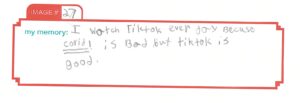 IMAGE # 27
my memory: I watch Tiktok ever day Because
covid is Bad but tiktok is
good.